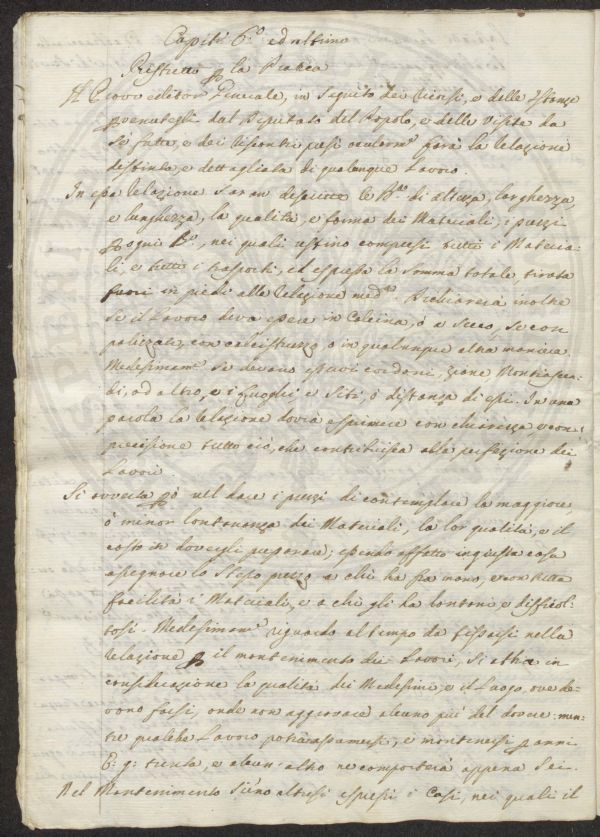 Capito 6.º ed ultimo
Ristretto p la Pratica
Il Provveditor Generale, in seguito dei Ricorsi, e delle Istanze
pvenutegli dal Deputato del Popolo, e delle Visite da
Se fatte, e dei riscontri presi ocularm.e farà la relazione
distinta, e dettagliata di qualunque Lavoro.
In essa relazione saran descritte le B.a di altezza, larghezza,
e lunghezza, la qualità, e forma dei Materiali, i prezzi
p ogni B.a, nei quali compresi tutti i Materia-
li, e tutti i trasporti, ed espressa la Somma totale tirata
fuori in piedi alla relazione med.a. Dichiarerà inoltre
se il Lavoro deva essere in Calcina, ò a Secco, se con
palizzate, con calcistruzzo, o in qualunque altra maniera.
Medesimam.e se devano esservi cordoni,
ad altro, e i Luoghi e Siti, ò distanza di essi. In una
parola la relazione dovrà esprimere con chiarezza, e con
precisione tutto ciò, che contribuisca alla perfezione dei
Lavori.
Si avverta pò nel dare i prezzi di contemplare la maggiore,
ò minor lontananza dei Materiali, la lor qualità, e il
costo di doverli preparare; essendo affatto ingiusta cosa
assegnare lo Stesso prezzo a chi ha fra mano, e con tutta
facilità i Materiali, e a chi gli ha lontani e difficol-
tosi. Medesimam.e riguardo al tempo da fissarsi nella
relazione p il mantenimento dei Lavori, si abbia in
considerazione la qualità dei Medesimi, e il Luogo, ove de-
vono farsi, onde non aggravare alcuno più del dovere: men-
tre qualche Lavoro potrà assumersi, e mantenersi p anni
E: g: trenta, e alcun altro ne comporterà appena Sei.
Nel Mantenimento sieno altresì espressi i Casi, nei quali il